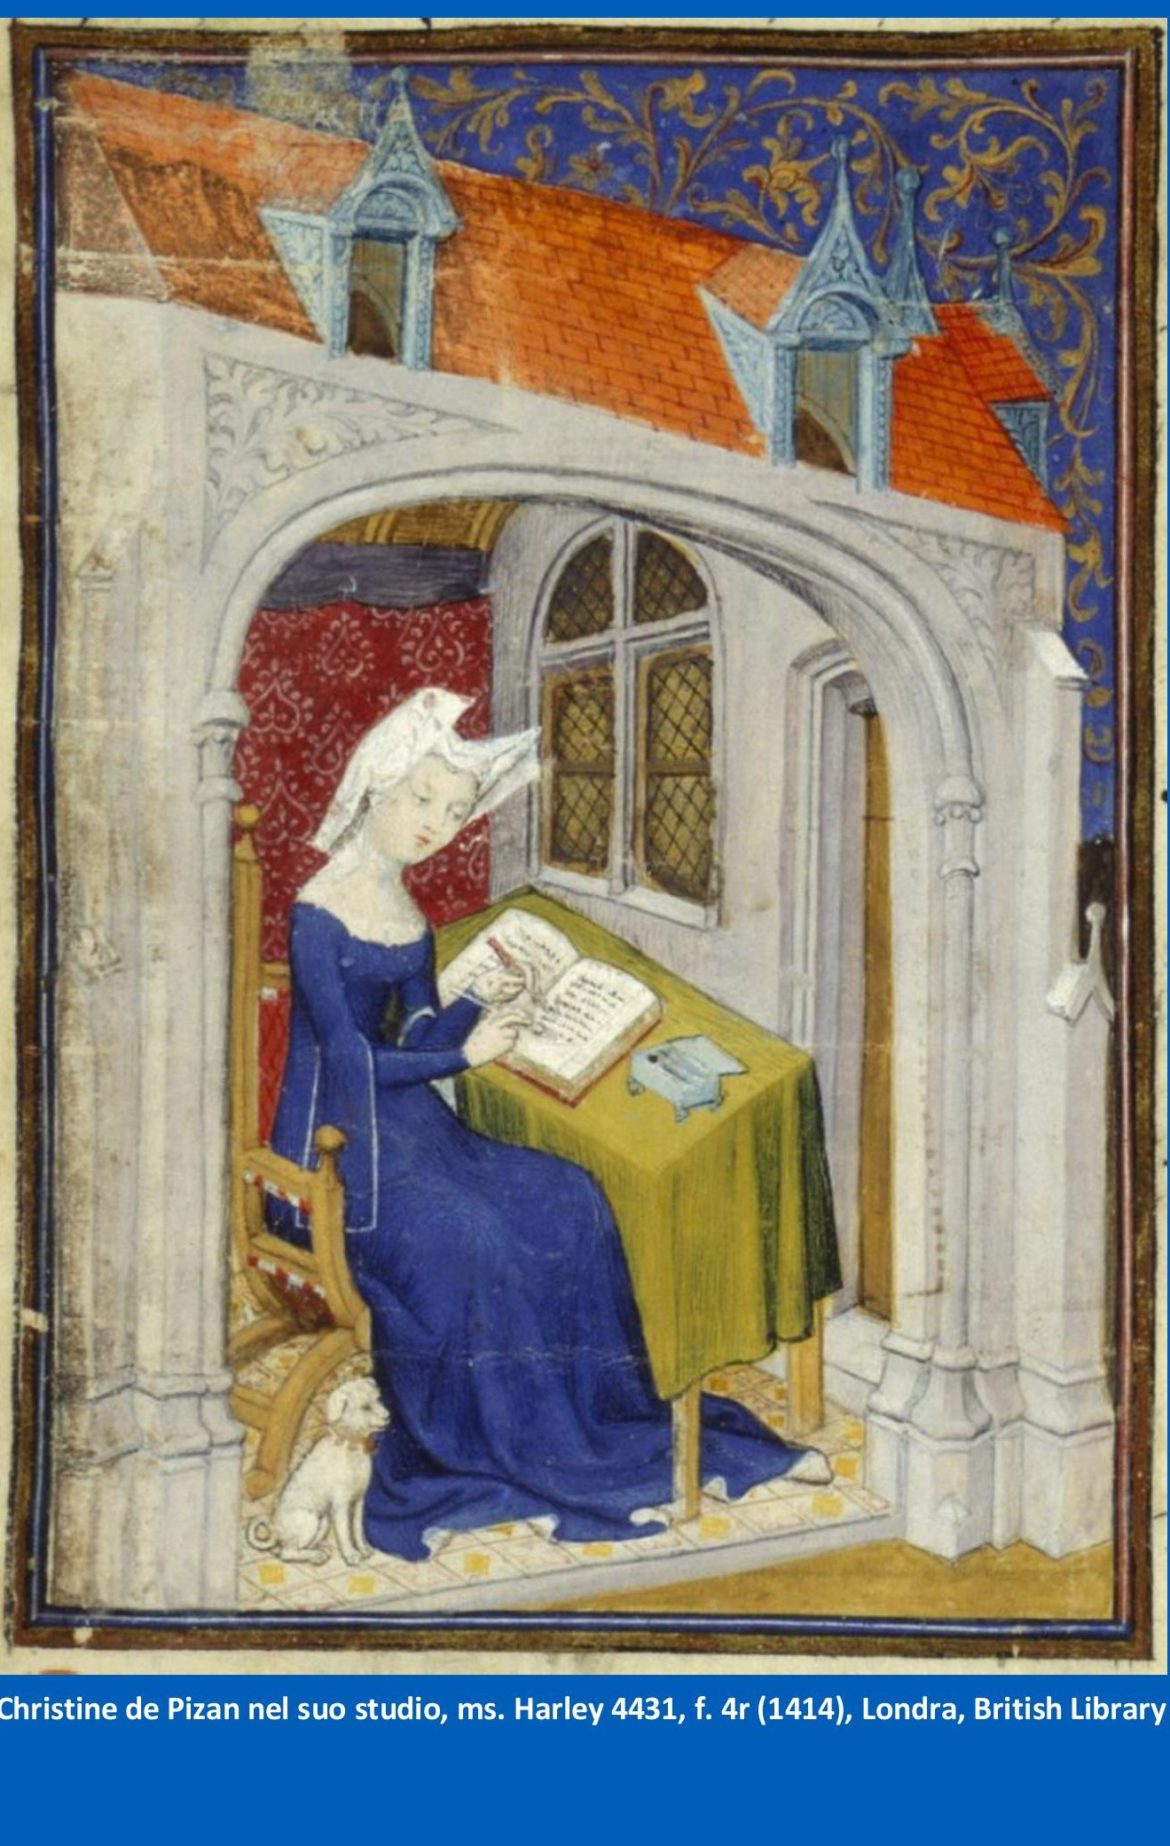 Christine de Pizan nel suo studio, ms. Harley 4431, f. 4r (1414), Londra, British Library